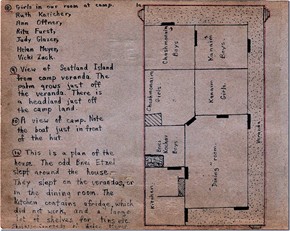 Girls in our room at camp.
Ruth Karlcher,
Ann Offner,
Rita Furst,
Judy Glazer,
Helen Mayer,
Vicki Jack.
View of Scotland Island
from camp veranda. The
palm grows just off
the veranda. There is
a headland just off
the camp land.
A view of camp. Note
the boat just in front
of the hut.
This is a plan of the
house. The odd Bnei Etzel
slept around the house.
They slept on the verandas, or
in the dining room. The
kitchen contains a fridge, which
did not work, and a large
lot of shelves for
Chashmonaim
Boys
Kanaim
Boys
Chashmonaim
Girls
Kanaim
Girls
Bnei
Kochav
Boys
Kitchen
Dining room
Veranda